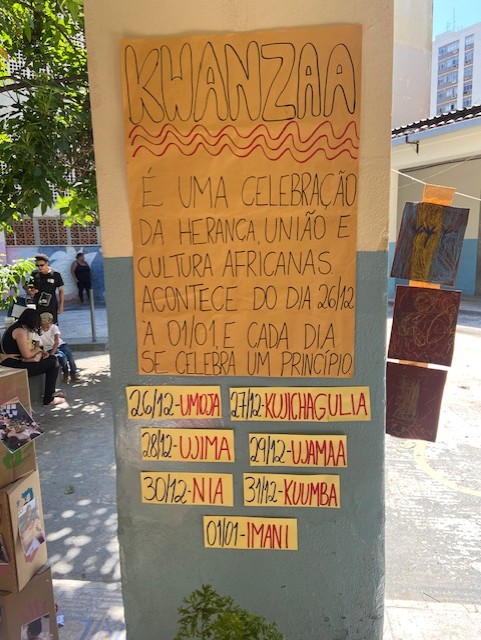 KWANZAA
É UMA CELEBRAÇÃO
DA HERANCA, UNIÃO E
CULTURA AFRICANAS.
ACONTECE DO DIA 26/12
À 01/01, E CADA DIA
SE CELEBRA UM PRINCÍPIO
26/12-UMOJA 27/12-KUJICHAGULIA
28/12-UJIMA 29/12-UJAMAA
30/12-NIA 31/12-KUUMBA
01/01-IMANI